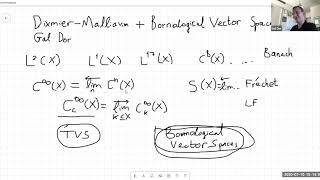 Dixmier-Malliavin + Bornological Vector Spaces
Gal Dor
L²(X) L¹(X) L¹⁷(X) C⁸(X) ... Banach
C^∞(X) = lim_n Cⁿ(X) S(X) = lim... Fréchet
C_c^∞(X) = lim_{K⊆X} C_K^∞(X) LF
TVS
Bornological
Vector Spaces